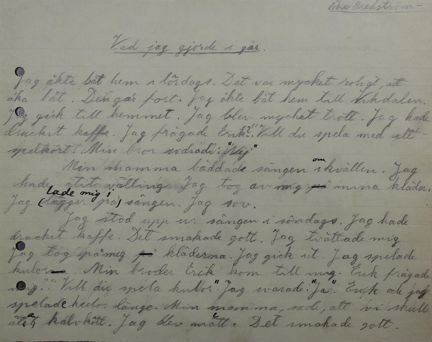 Vad jag gjorde i går.
Jag åkte båt hem i lördags. Det var mycket roligt, att
åka båt. Den går fort. Jag åkte båt hem till Vikdalen.
Jag gick till hemmet. Jag blev mycket trött. Jag hade
druckit kaffe. Jag frågade Erik: "Vill du spela med ett
spelkort? Min bror svarade: "Nej"
Min mamma bäddade sängen om kvällen. Jag
hade tvättning. Jag tog av mig mina kläder.
Lade mig i
Jag (lägger på) sängen. Jag sov.
Jag stod upp ur sängen i söndags. Jag hade
drucket kaffe. Det smakade gott. Jag tvättade mig
Jag tog på mig kläderna. Jag gick ut. Jag spelade
kulor. Min broder Erik kom till mig. Erik frågade
mig: "Vill du spela kulor" Jag svarade: "Ja". Erik och jag
spelade kulor länge. Min mamma, att vi skull
äta kalvkött. Jag blev mätt. Det smakade gott.